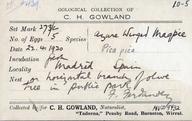 OOLOGICAL COLLECTION OF 10-5
C. H. GOWLAND
Set Mark 273/5 azure Winged Magpie
No. of Eggs 5 Species Pica pica
Date 22.4.1920
Incubation fresh
Locality Madrid Spain
Nest on horizontal branch of olive
tree in public park
Collected for C. H. GOWLAND, Naturalist,
"Tadorna," Pensby Road, Barnston, Wirral.